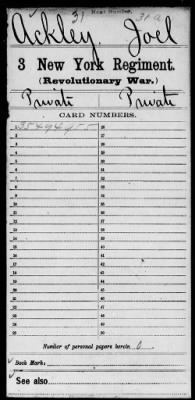 31
31 a
Ackley, Joel
3 New York Regiment.
(Revolutionary War.)
Private Private
CARD NUMBERS.
1 35494955 26
2 27
3 28
4 29
5 30
6 31
7 32
8 33
9 34
10 35
11 36
12 37
13 38
14 39
15 40
16 41
17 42
18 43
19 44
20 45
21 46
22 47
23 48
24 49
25 50
Number of personal papers herein 0
Book Mark:
See also